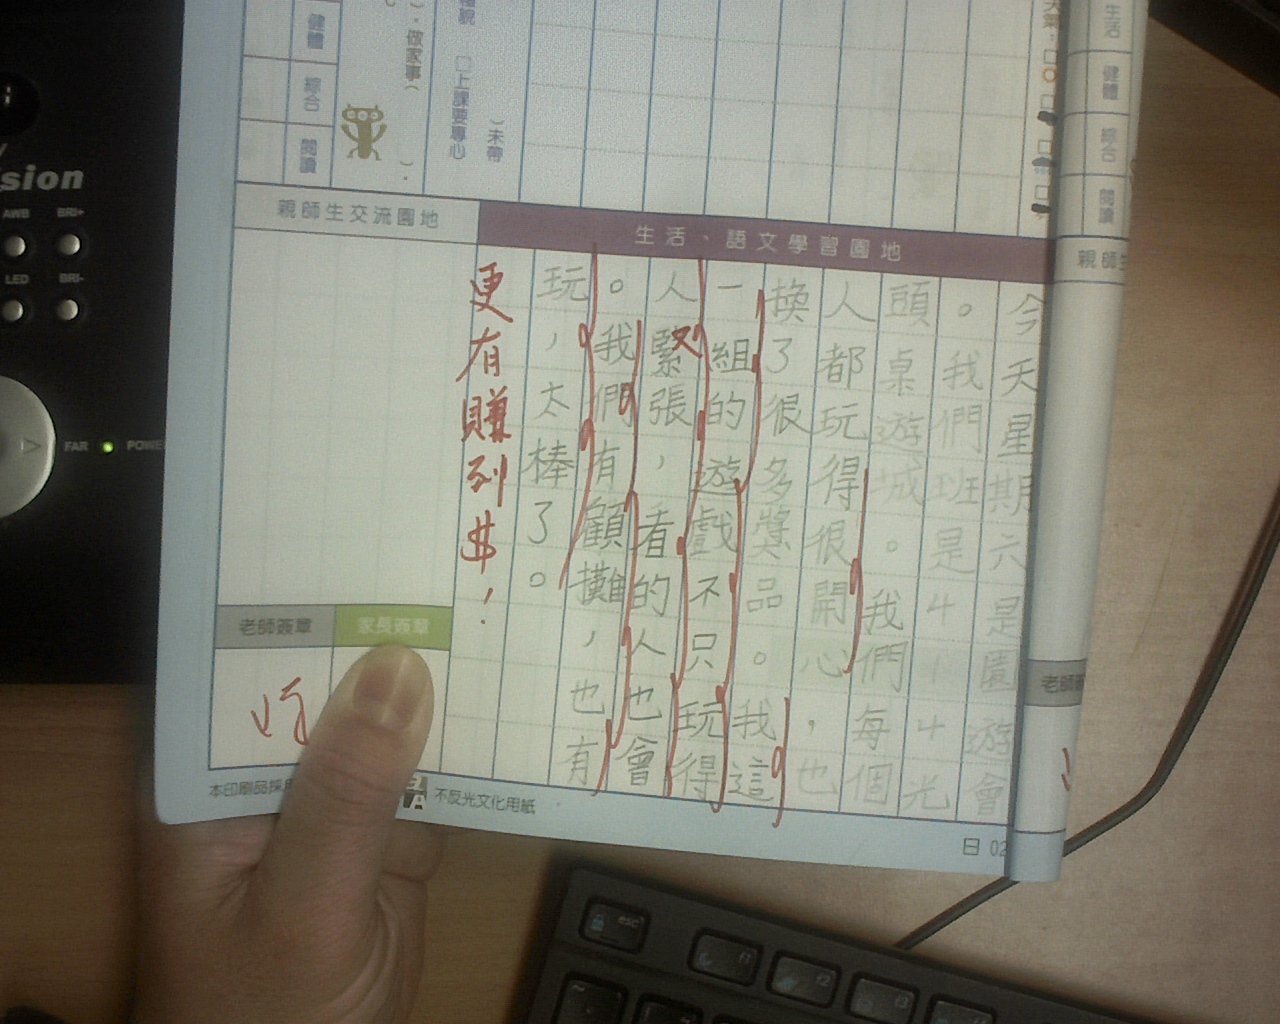 今天星期六是園遊會
。我們班是4 1 4光
頭桌遊城。我們每個
人都玩得很開心，也
換了很多獎品。我這
一組的遊戲不只玩得
人緊張，看的人也會
。我們有顧攤，也有
玩，太棒了。
更有賺到$！
生活、語文學習園地
親師生交流園地
老師簽章
家長簽章
不反光文化用紙
本印刷品採用
日 02
健體
綜合
閱讀
做家事
□上課要專心
未帶
生活
健體
綜合
閱讀
親師生
老師簽
sion
AWB
BRI+
LED
BRI-
FAR
POWE
esc
F1
F2
F3